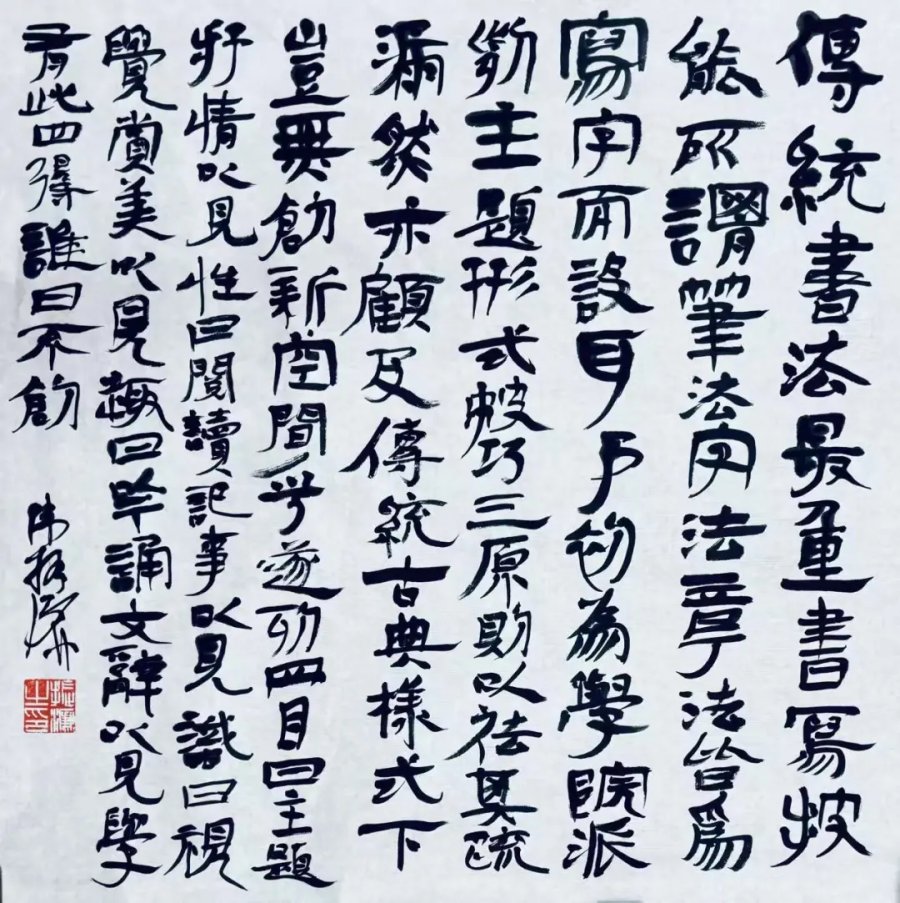 傳統書法最重書寫技
能所謂筆法字法章法皆爲
寫字而設耳予初為學院派
列主題形式技巧三原則以祛其疏
漏然亦顧及傳統古典樣式下
豈無創新空間乎遂列四目曰主題
抒情以見性曰閱讀記事以見識曰視
覺賞美以見趣曰吟誦文辭以見學
有此四得誰曰不創
陳振濂
振濂之印